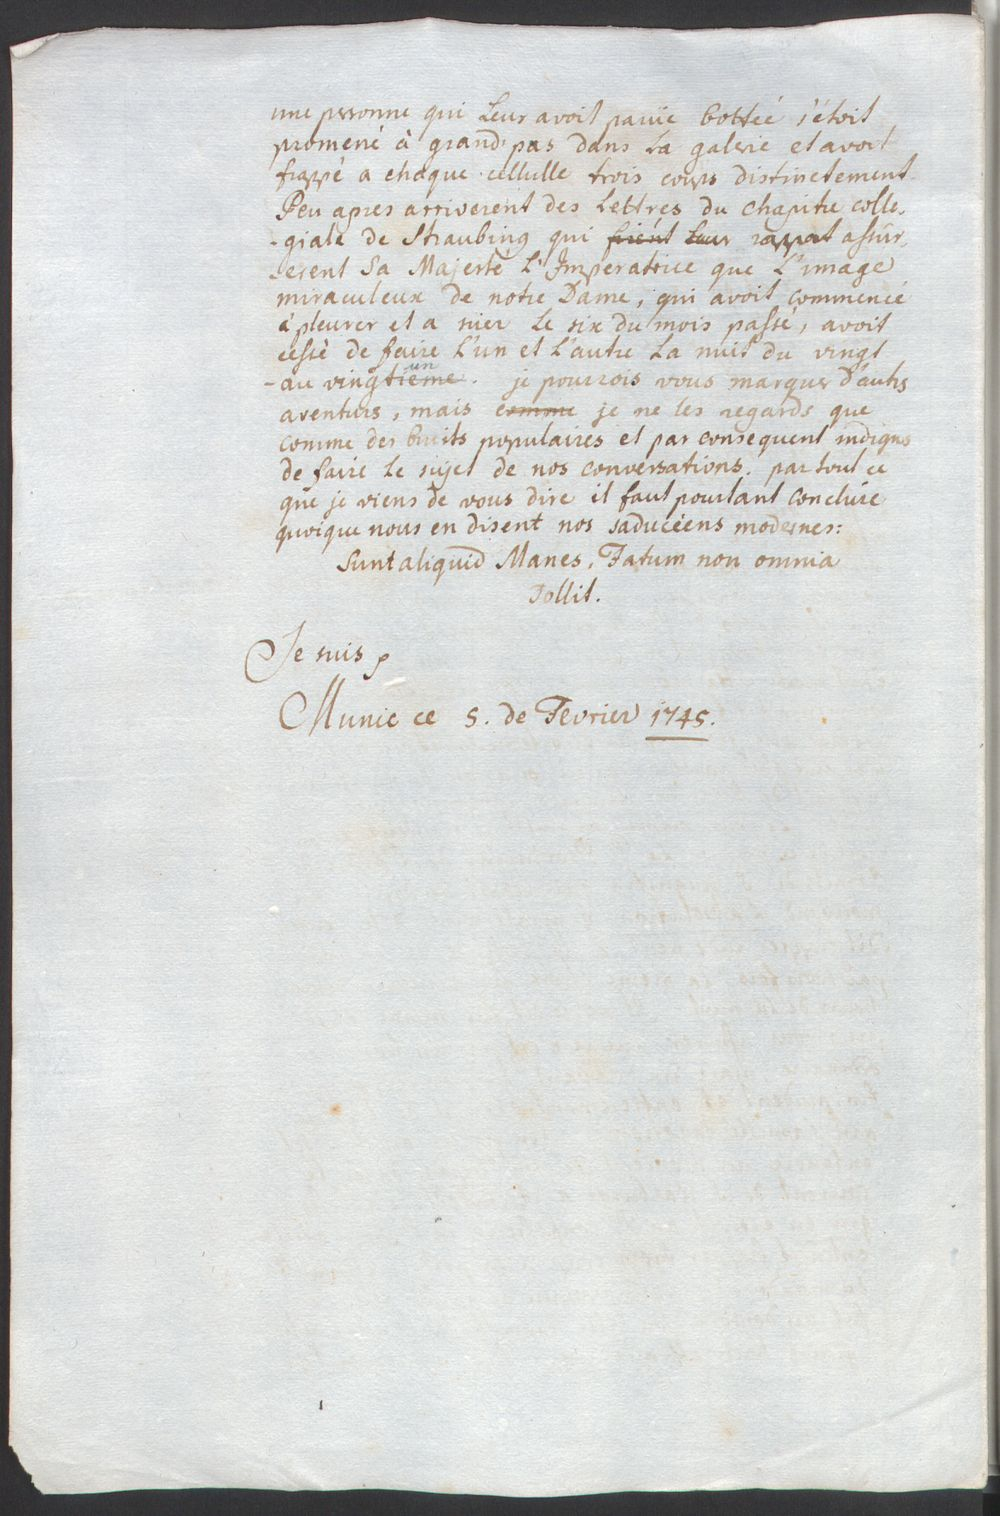 une personne qui Leur avoit parüe bottée s'étoit
promené à grand pas dans La galerie et avoit
frappé a chaque cellulle trois coups distinctement
Peu apres arriverent des Lettres du Chapitre colle,
-giale de Straubing qui firent Leur rapport assûr,
,erent Sa Majesté L'Imperatrice que L'image
miraculeux de notre Dame, qui avoit commencé
à pleurer et a suer Le six du mois passé, avoit
cessé de faire L'un et L'autre La nuit du vingt
un
-au vingtieme. je pourrois vous marquer d'autrs
aventurs, mais comme je ne les regards que
comme des bruits populaires et par consequent indigns
de faire Le sujet de nos conversations. par tout ce
que je viens de vous dire il faut pourtant conclúre
quoique nous en disent nos saducéens modernes:
Sunt aliquid Manes, Fatum non omnia
Tollit.
Je suis
Munic ce 5. de Fevrier 1745.